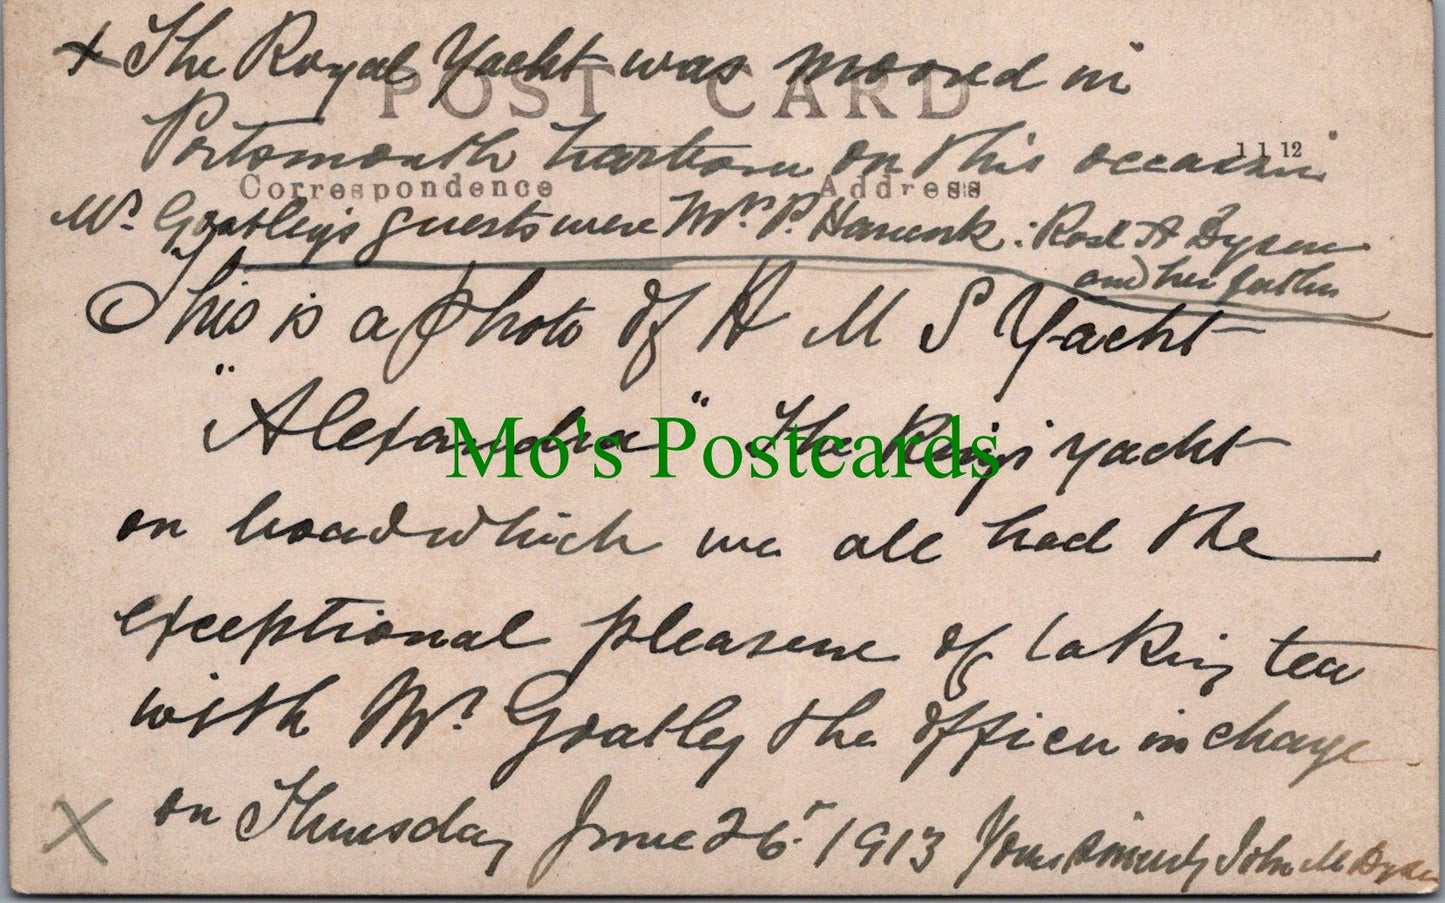 x The Royal Yacht was moored in
POST CARD
Portsmouth harbour on this occasion
1 1 12
Correspondence Address
Mr. Goatley's guests were Mrs. P. : A Dyson
and her father
This is a photo of H M S Yacht
"Alexandra" The King's yacht
Mo's Postcards
on board which we all had the
exceptional pleasure of taking tea
with Mr. Goatley the officer in charge
on Thursday June 26. 1913 Yours sincerely John M Dyson
X